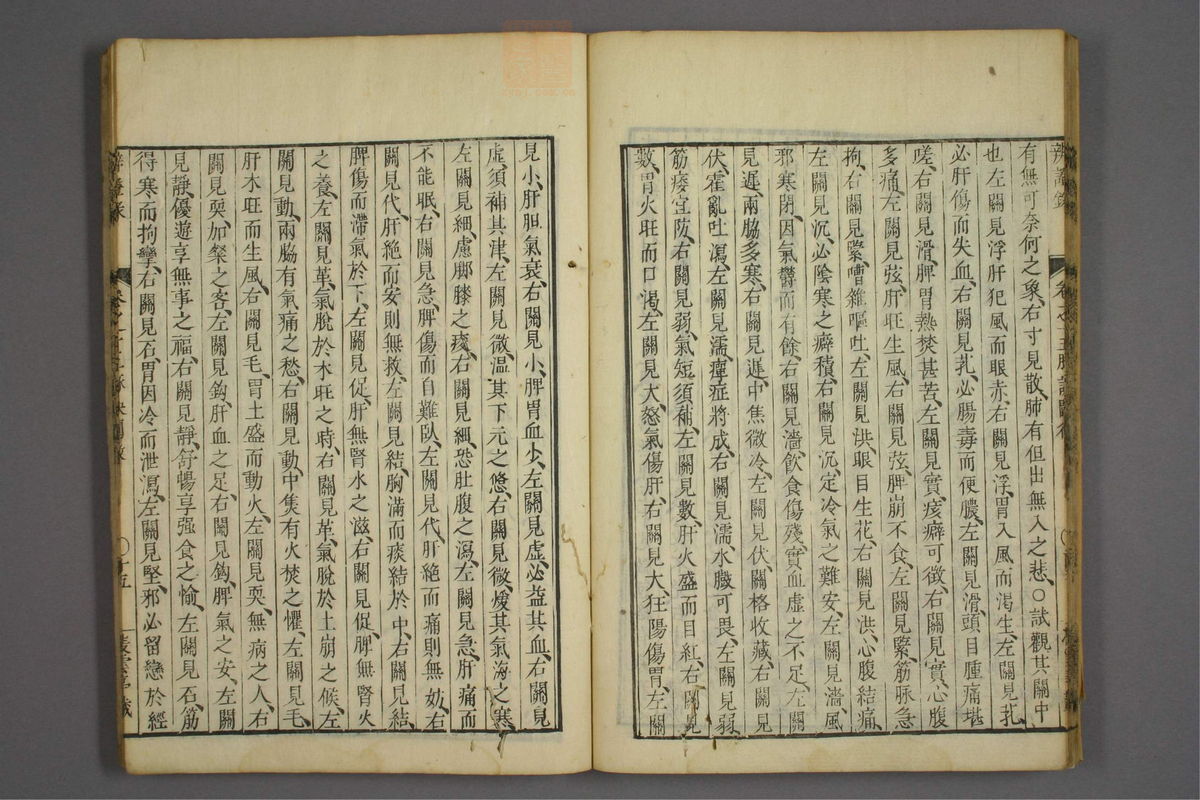 有無可奈何之象、右寸見散、肺有但出無入之悲、○試觀其關中
也、左關見浮、肝犯風而眼赤、右關見浮、胃入風而渴生、左關見芤、
必肝傷而失血、右關見芤、必腸毒而便膿、左關見滑、頭目腫痛堪
嗟、右關見滑、脾胃熱焚甚苦、左關見實、痃癖可徵、右關見實、心腹
多痛、左關見弦、肝旺生風、右關見弦、脾崩不食、左關見緊、筋脉急
拘、右關見緊、嘈雜嘔吐、左關見洪、眼目生花、右關見洪、心腹結痛、
左關見沉、必陰寒之癖積、右關見沉、定冷氣之難安、左關見濇、風
邪寒閉、因氣鬱而有餘、右關見濇、飲食傷殘、實血虛之不足、左關
見遲、兩脇多寒、右關見遲、中焦微冷、左關見伏、關格收藏、右關見
伏、霍亂吐瀉、左關見濡、癉症將成、右關見濡、水臌可畏、左關見弱、
筋痿宜防、右關見弱、氣短須補、左關見數、肝火盛而目紅、右關見
數、胃火旺而口渴、左關見大、怒氣傷肝、右關見大、狂陽傷胃、左關
見小、肝胆氣衰、右關見小、脾胃血少、左關見虛、必益其血、右關見
虛、須補其津、左關見微、溫其下元之憊、右關見微、煖其氣海之寒、
左關見細、慮脚膝之痠、右關見細、恐肚腹之瀉、左關見急、肝痛而
不能眠、右關見急、脾傷而自難臥、左關見代、肝絶而痛則無妨、右
關見代、肝絶而安則無救、左關見結、胸滿而痰結於中、右關見結、
脾傷而滯氣於下、左關見促、肝無腎水之滋、右關見促、脾無腎火
之養、左關見革、氣脫於木旺之時、右關見革、氣脫於土崩之候、左
關見動、兩脇有氣痛之愁、右關見動、中焦有火焚之懼、左關見毛、
肝木旺而生風、右關見毛、胃土盛而動火、左關見耎、無病之人、右
關見耎、加餐之客、左關見鈎、肝血之足、右關見鈎、脾氣之安、左關
見靜、優遊享無事之福、右關見靜、舒暢享强食之愉、左關見石、筋
得寒而拘攣、右關見石、胃因冷而泄瀉、左關見堅、邪必留戀於經